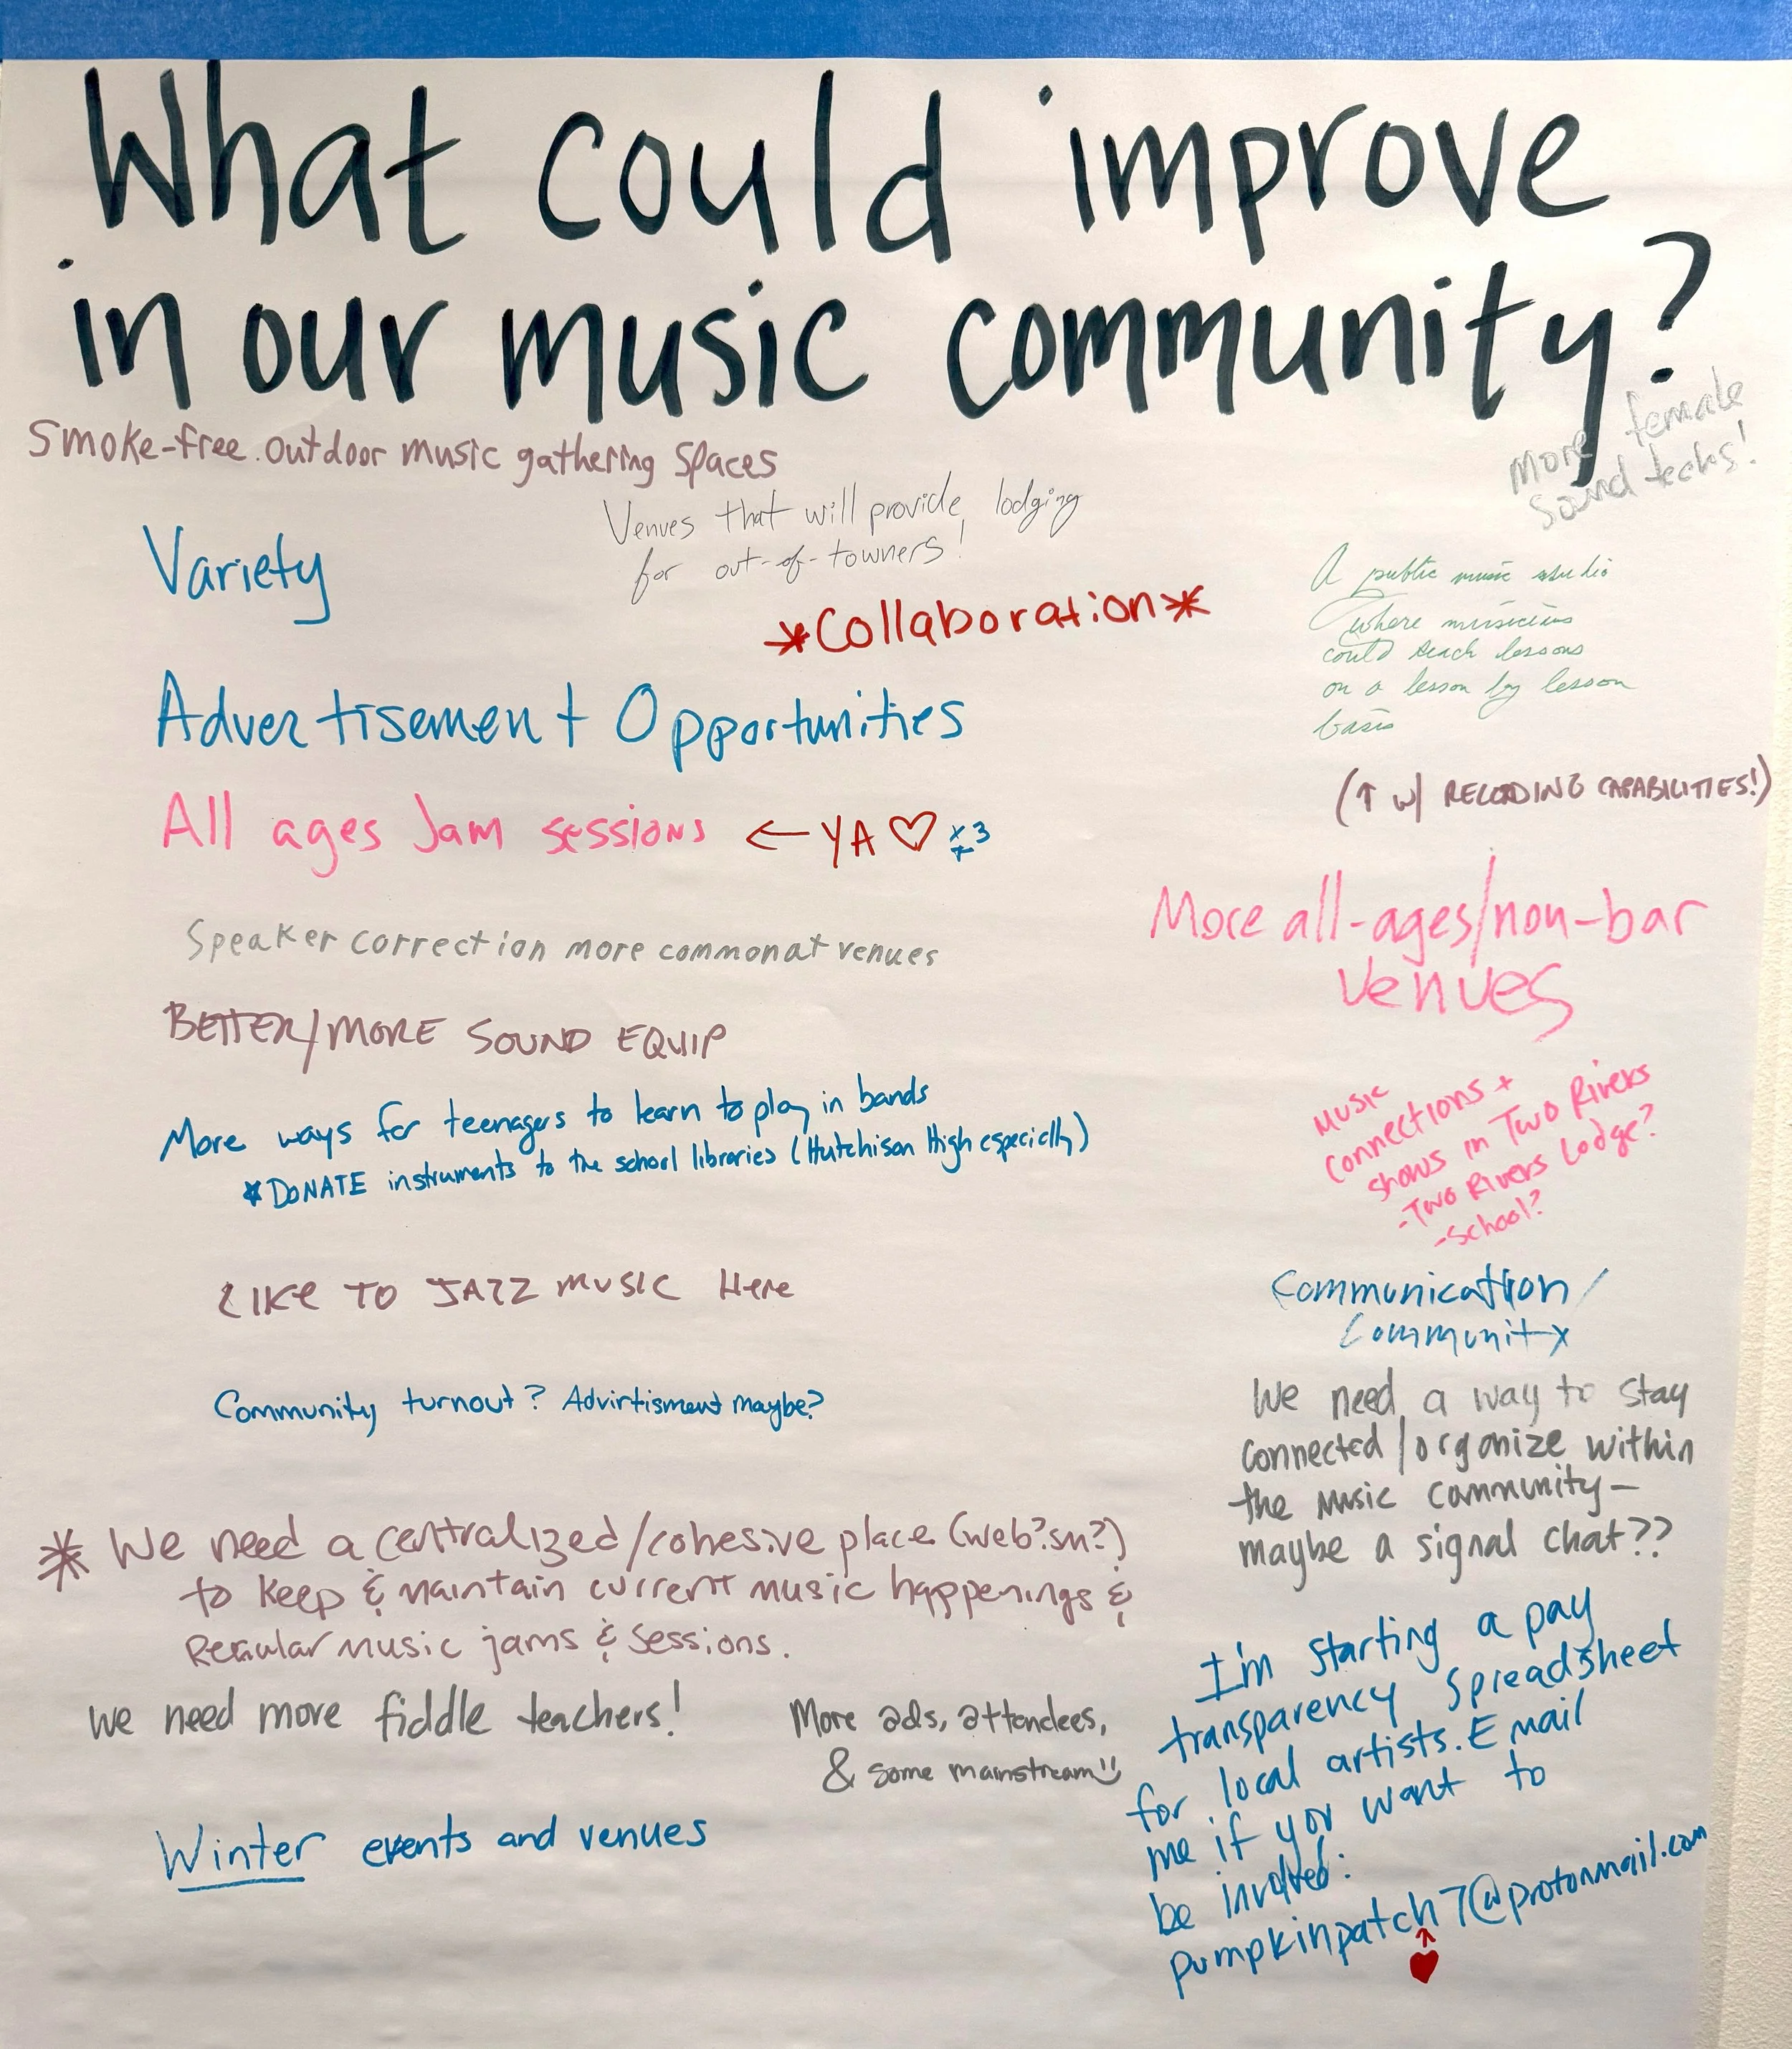 What could improve
in our music community?
Smoke-free outdoor music gathering spaces
More female
sound techs!
Venues that will provide lodging
for out-of-towners!
Variety
*Collaboration*
A public music studio
where musicians
could teach lessons
on a lesson by lesson
basis
Advertisement Opportunities
(↑ w/ RECORDING CAPABILITIES!)
All ages Jam sessions ← YA ♡ x3
More all-ages/non-bar
venues
Speaker correction more common at venues
BETTER/MORE SOUND EQUIP
More ways for teenagers to learn to play in bands
*DONATE instruments to the school libraries (Hutchison High especially)
Music
connections +
shows in Two Rivers
-Two Rivers Lodge?
-School?
LIKE TO JAZZ MUSIC Here
Communication/
Community
Community turnout? Advirtisment maybe?
We need a way to stay
connected/organize within
the music community—
maybe a signal chat??
* We need a centralized/cohesive place (web?sm?)
to keep & maintain current music happenings &
Regular music jams & sessions.
I'm starting a pay
transparency spreadsheet
for local artists. Email
me if you want to
be involved:
pumpkinpatch7@protonmail.com
we need more fiddle teachers!
More ads, attendees,
& some mainstream
Winter events and venues